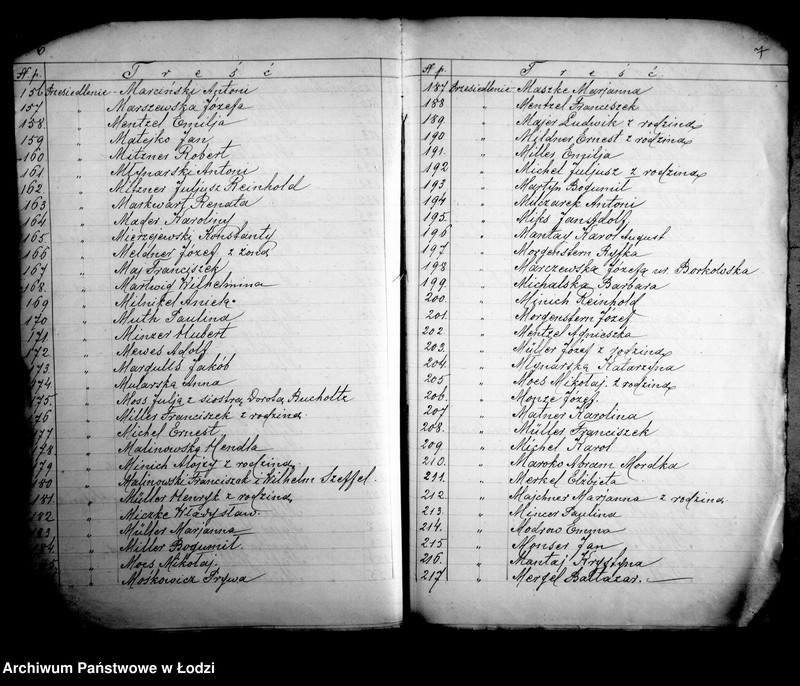 6
N p. Treść
156 Przesiedlenie - Marciński Antoni
157 " Marszewska Józefa
158. " Mentzel Emilja
159 " Matejko Jan
160 " Mitzner Robert
161 " Młynarski Antoni
162 " Mitzner Juljusz Reinhold
163 " Markwart Renata
164 " Mager Karoliny
165 " Mierzejewski Konstanty
166 " Meldner Józef z żoną
167 " Maj Franciszek
168. " Martwig Wilhelmina
169 " Milnikel Aniela
170 " Muth Paulina
171 " Minzer Hubert
172 " Mewes Adolf
173 " Margulis Jakób
174 " Mularska Anna
175. " Moss Julja z siostrą Dorotą Bucholtz
176 " Miller Franciszek z rodziną
177 " Michel Ernest
178 " Malinowska Hendla
179 " Minich Alojzy z rodziną
180 " Malinowski Franciszek i Wilhelm Szeffel.
181. " Müller Henryk z rodziną
182 " Miczke Władysław
183 " Müller Marjanna
184. " Miller Bogumił
185. " Moes Mikołaj
" Moskowicz Frywa
7
N p. Treść
187 Przesiedlenie - Maszke Marjanna
188 " Mentzel Franciszek
189. " Majer Ludwik z rodziną
190 " Mildner Ernest z rodziną
191. " Miller Emilja
192 " Michel Juljusz z rodziną
193 " Martyn Bogumił
194 " Muczarek Antoni
195. " Miks Jan Adolf
196 " Mantay Karol August
197 " Morgenstern Ryfka
198 " Marczewska Józefa ur. Borkowska
199. " Michalska Barbara
200. " Münich Reinhold
201. " Morgenstern Józef
202. " Mentzel Agnieszka
203. " Müller Józef z rodziną
204. " Młynarska Katarzyna
205 " Moes Mikołaj z rodziną
206. " Monze Józef.
207 " Matner Karolina
208. " Müller Franciszek
209 " Michel Karol
210. " Maroko Abram Mordka
211. " Merkel Elżbieta
212 " Majchner Marjanna z rodziną
213. " Mincer Paulina
214. " Modrow Emma
215 " Monser Jan
216. " Mantaj Krystyna
217 " Mergel Baltazar.
Archiwum Państwowe w Łodzi